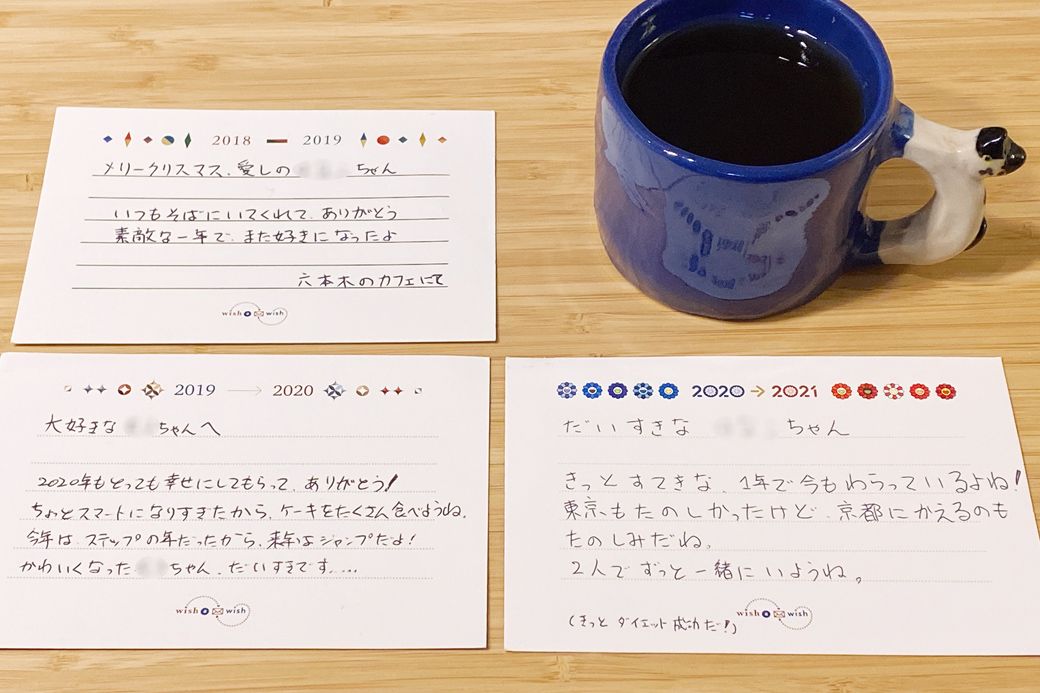 2018 2019
メリークリスマス、愛しの ちゃん
いつもそばにいてくれて、ありがとう
素敵な一年で、また好きになったよ
六本木のカフェにて
wish wish
2019 → 2020
大好きな ちゃんへ
2020年もとっても幸せにしてもらって、ありがとう!
ちょっとスマートになりすぎたから、ケーキをたくさん食べようね。
今年は、ステップの年だったから、来年はジャンプだよ!
かわいくなった ちゃん、だいすきです....
wish wish
2020 → 2021
だいすきな ちゃん
きっとすてきな、1年で今もわらっているよね!
東京もたのしかったけど、京都にかえるのも
たのしみだね。
2人でずっと一緒にいようね。
(きっとダイエット成功だ!)
wish wish